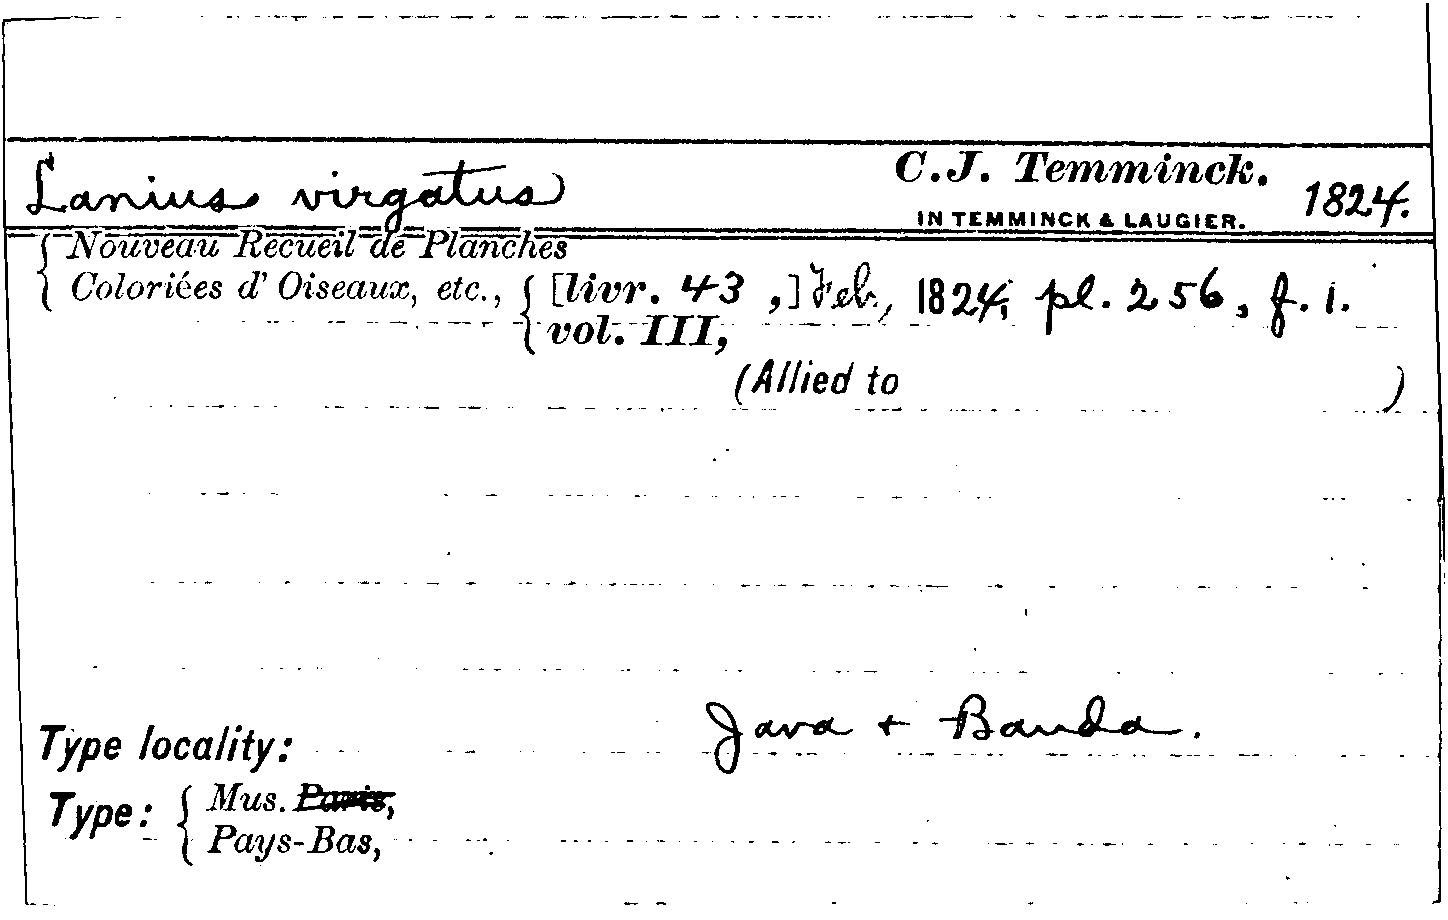 Lanius virgatus C.J. Temminck. 1824.
IN TEMMINCK & LAUGIER.
Nouveau Recueil de Planches
Coloriées d' Oiseaux, etc., [livr. 43 ,] Feb, 1824, pl. 256, f. 1.
vol. III,
(Allied to )
Type locality: Java + Banda.
Type: Mus. Paris,
Pays-Bas,